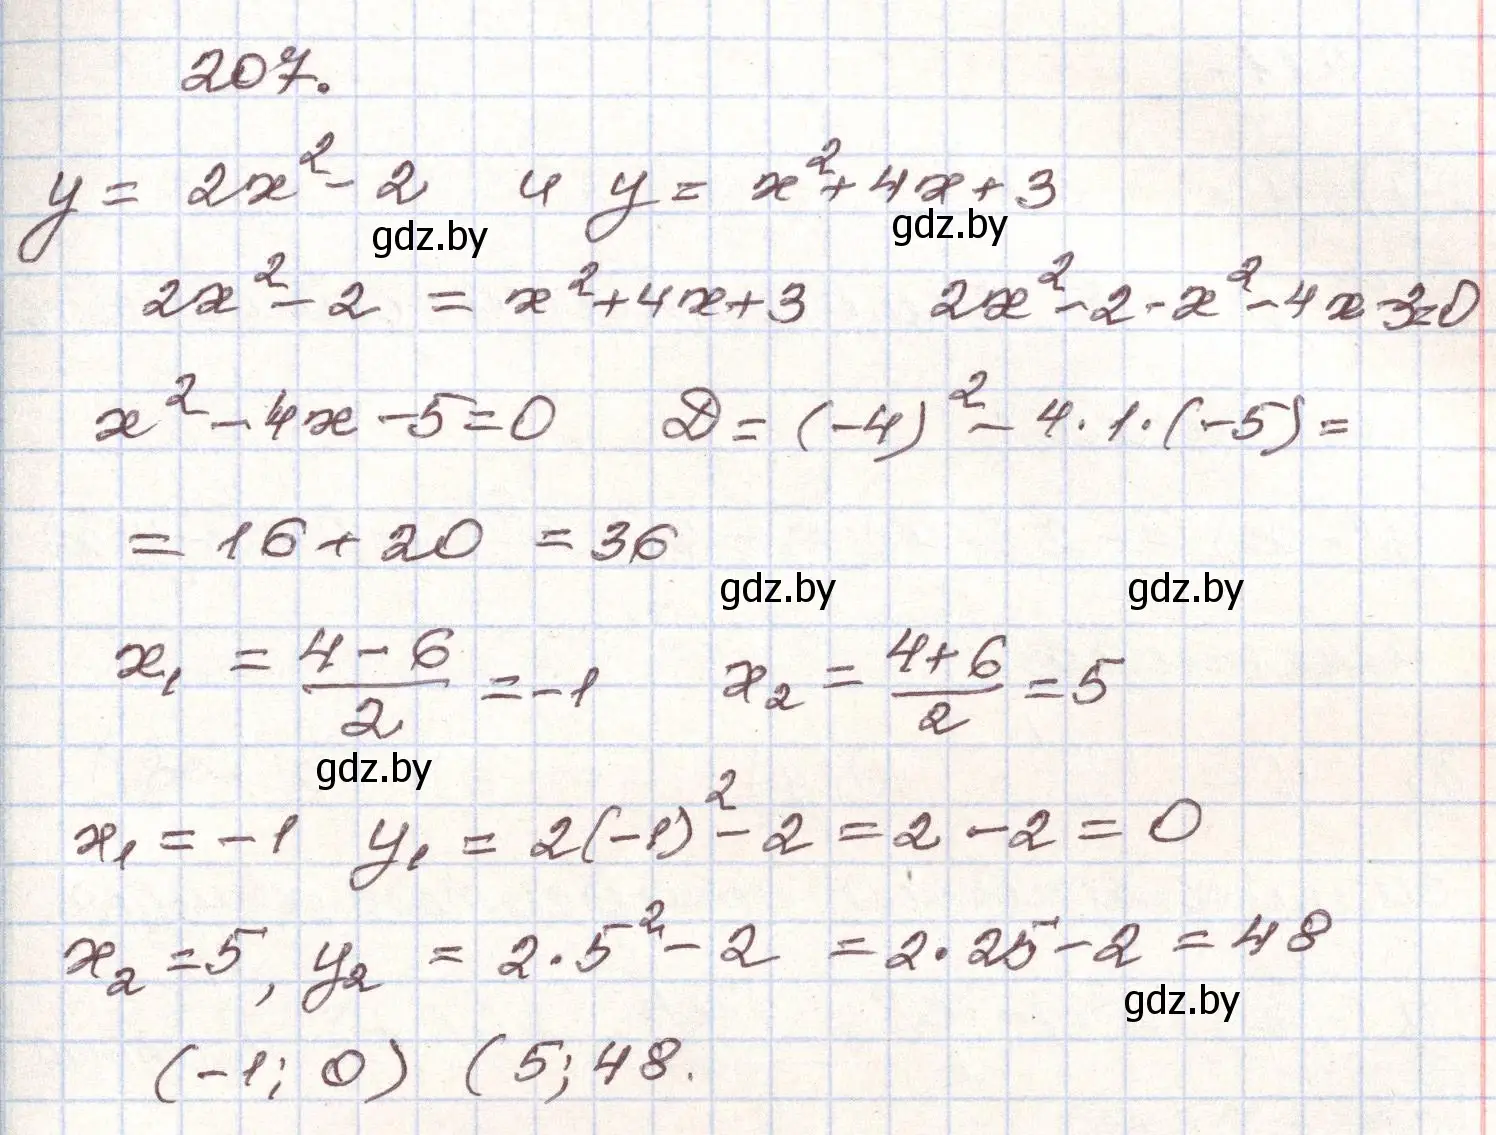 207.
y = 2x² - 2 и y = x² + 4x + 3
gdz.by gdz.by
2x² - 2 = x² + 4x + 3 2x² - 2 - x² - 4x - 3 = 0
x² - 4x - 5 = 0 D = (-4)² - 4 · 1 · (-5) =
= 16 + 20 = 36
gdz.by gdz.by
x₁ = (4 - 6)/2 = -1 x₂ = (4 + 6)/2 = 5
gdz.by
x₁ = -1 y₁ = 2(-1)² - 2 = 2 - 2 = 0
x₂ = 5, y₂ = 2 · 5² - 2 = 2 · 25 - 2 = 48
gdz.by
(-1; 0) (5; 48.